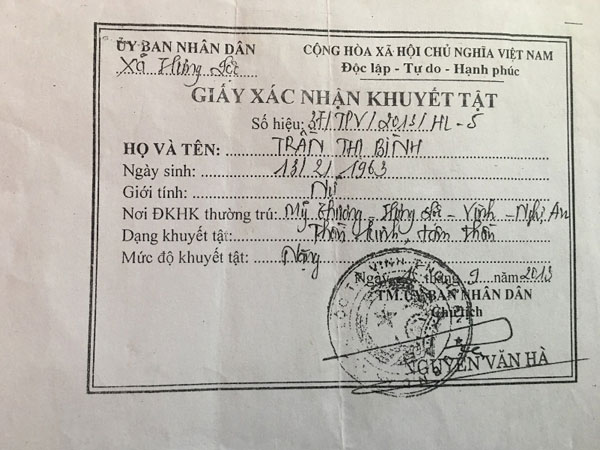 ỦY BAN NHÂN DÂN
Xã Hưng Lộc
CỘNG HÒA XÃ HỘI CHỦ NGHĨA VIỆT NAM
Độc lập - Tự do - Hạnh phúc
GIẤY XÁC NHẬN KHUYẾT TẬT
Số hiệu: 37/TPV/2013/HL-5
HỌ VÀ TÊN: TRẦN THỊ BÌNH
Ngày sinh: 13/2/1963
Giới tính: Nữ
Nơi ĐKHK thường trú: Mỹ Thượng - Hưng Lộc - Vinh - Nghệ An
Dạng khuyết tật: Thần kinh, tâm thần
Mức độ khuyết tật: Nặng
Ngày tháng 9 năm 2013
TM. ỦY BAN NHÂN DÂN
Chủ tịch
NGUYỄN VĂN HÀ